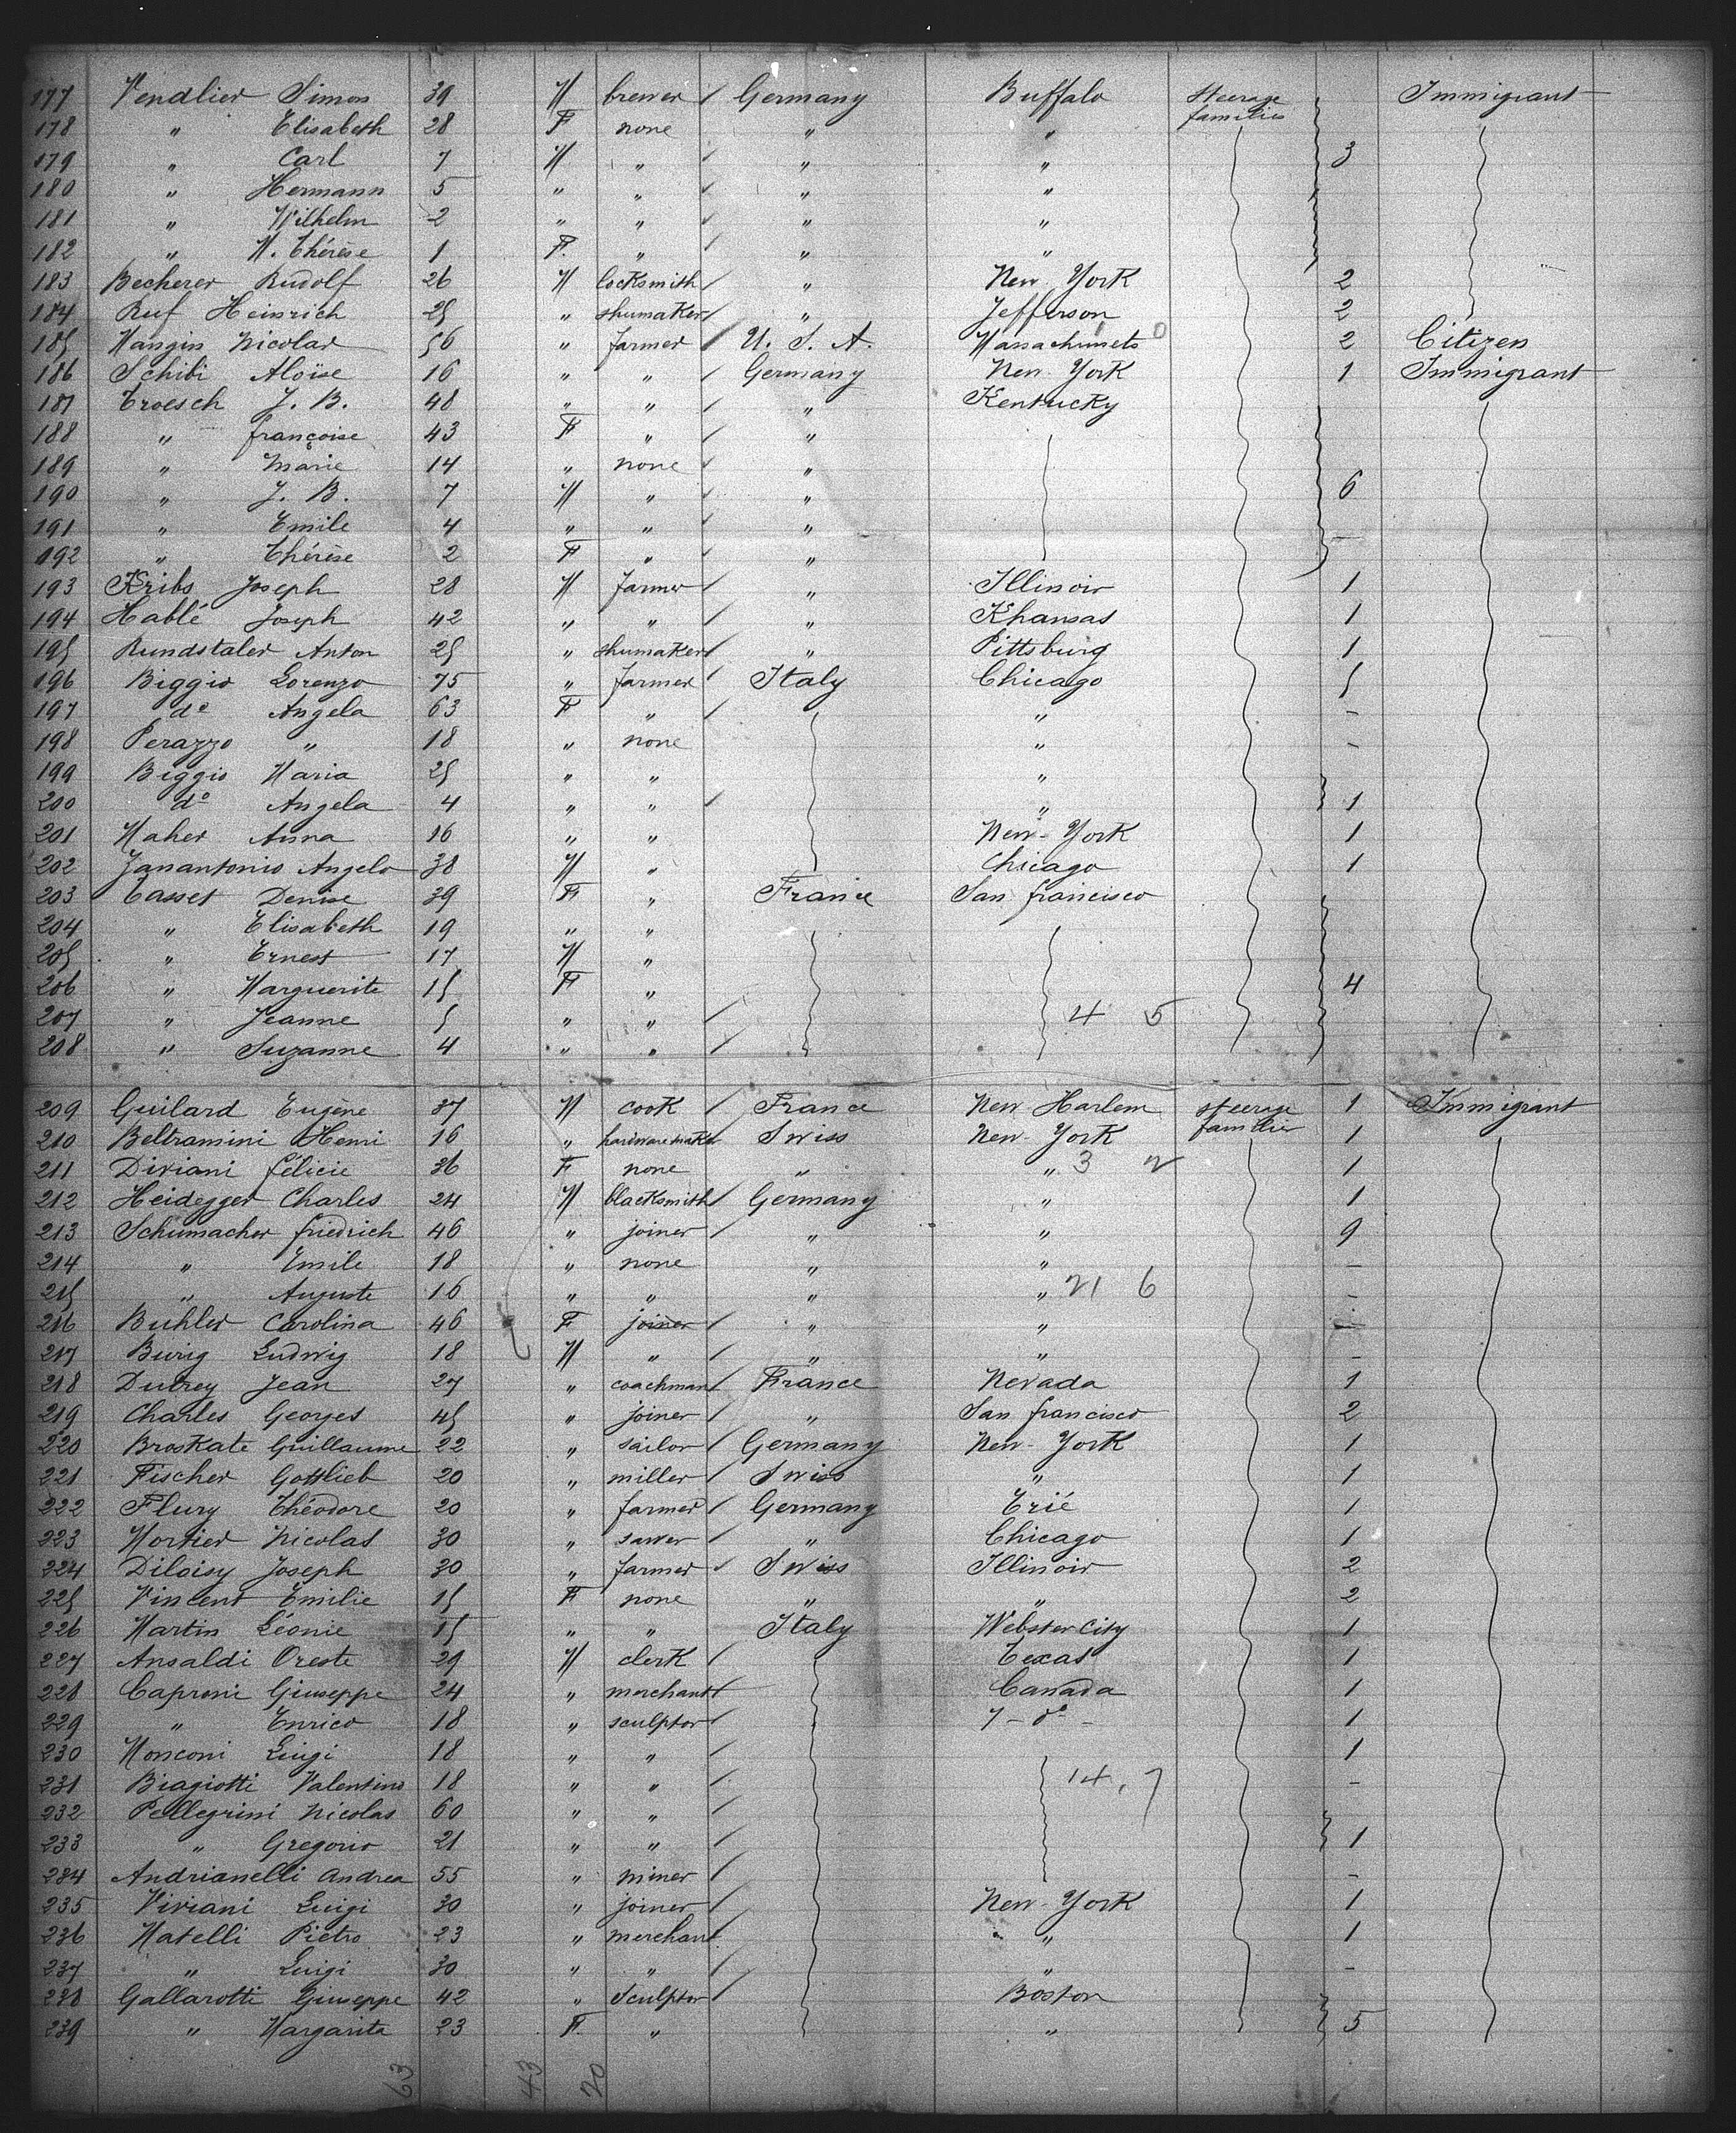 177 Vendlier Simon 39 M brewer / Germany Buffalo Steerage families Immigrant
178 " Elisabeth 28 F none " "
179 " Carl 7 M " " " 3
180 " Hermann 5 " " " "
181 " Wilhelm 2 " " " "
182 " M. Thérèse 1 F. " " "
183 Becherer Rudolf 26 M locksmith / " New York 2
184 Ruf Heinrich 25 " shumaker / " Jefferson 2
185 Mangin Nicolas 56 " farmer / U. S. A. Massachunets 0 2 Citizen
186 Schibi Aloïse 16 " " / Germany New-York 1 Immigrant
187 Troesch J. B. 48 " " / " Kentucky
188 " françoise 43 F " / "
189 " Marie 14 " none "
190 " J. B. 7 M " " 6
191 " Emile 4 " " "
192 " Thérèse 2 F " "
193 Kribs Joseph 28 M farmer / " Illinois 1
194 Hablé Joseph 42 " " / " Khansas 1
195 Rundstaler Anton 25 " shumaker / " Pittsburg 1
196 Biggio Lorenzo 75 " farmer / Italy Chicago 5
197 do Angela 63 F " / " -
198 Perazzo " 18 " none " -
199 Biggio Maria 25 " " "
200 do Angela 4 " " / " 1
201 Maher Anna 16 " " New-York 1
202 Zanantonio Angelo 38 M " Chicago 1
203 Tasset Denise 39 F " France San francisco
204 " Elisabeth 19 " "
205 " Ernest 17 M "
206 " Marguerite 15 F " 4
207 " Jeanne 5 " " / 4 5
208 " Suzanne 4 " " /
209 Guilard Eugène 37 M cook / France New Harlem steerage families 1 Immigrant
210 Beltramini Henri 16 " Swiss New-York 1
211 Diviani félicie 36 F none " " 3 2 1
212 Heidegger Charles 24 M blacksmith / Germany " 1
213 Schumacher friedrich 46 " joiner / " " 9
214 " Emile 18 " none " " -
215 " Auguste 16 " " " " 21 6 -
216 Buhler Carolina 46 F joiner / " " -
217 Burig Ludwig 18 M " / " " -
218 Dutrey Jean 27 " coachman / France Nevada 1
219 Charles Georges 45 " joiner / " San francisco 2
220 Broskate Guillaume 22 " sailor / Germany New-York 1
221 Fischer Gottlieb 20 " miller / Swiss " 1
222 Flury Théodore 20 " farmer / Germany Erié 1
223 Mortier Nicolas 30 " sawer / " Chicago 1
224 Diloisy Joseph 30 " farmer / Swiss Illinois 2
225 Vincent Emilie 15 F none " " 2
226 Martin Léonie 15 " " Italy Webster City 1
227 Ansaldi Oreste 29 M clerk / Texas 1
228 Caproni Giuseppe 24 " merchant / Canada 1
229 " Enrico 18 " sculptor / 7 - do - 1
230 Monconi Luigi 18 " " / 1
231 Biagiotti Valentino 18 " " / 14, 7 -
232 Pellegrini Nicolas 60 " " /
233 " Gregorio 21 " " / 1
234 Andrianelli Andrea 55 " miner / -
235 Viviani Luigi 30 " joiner / New-York 1
236 Matelli Pietro 23 " merchant / " 1
237 " Luigi 30 " " / " -
238 Gallarotti Giuseppe 42 " Sculptor / Boston
239 " Margarita 23 F. " " 5
63 43 20